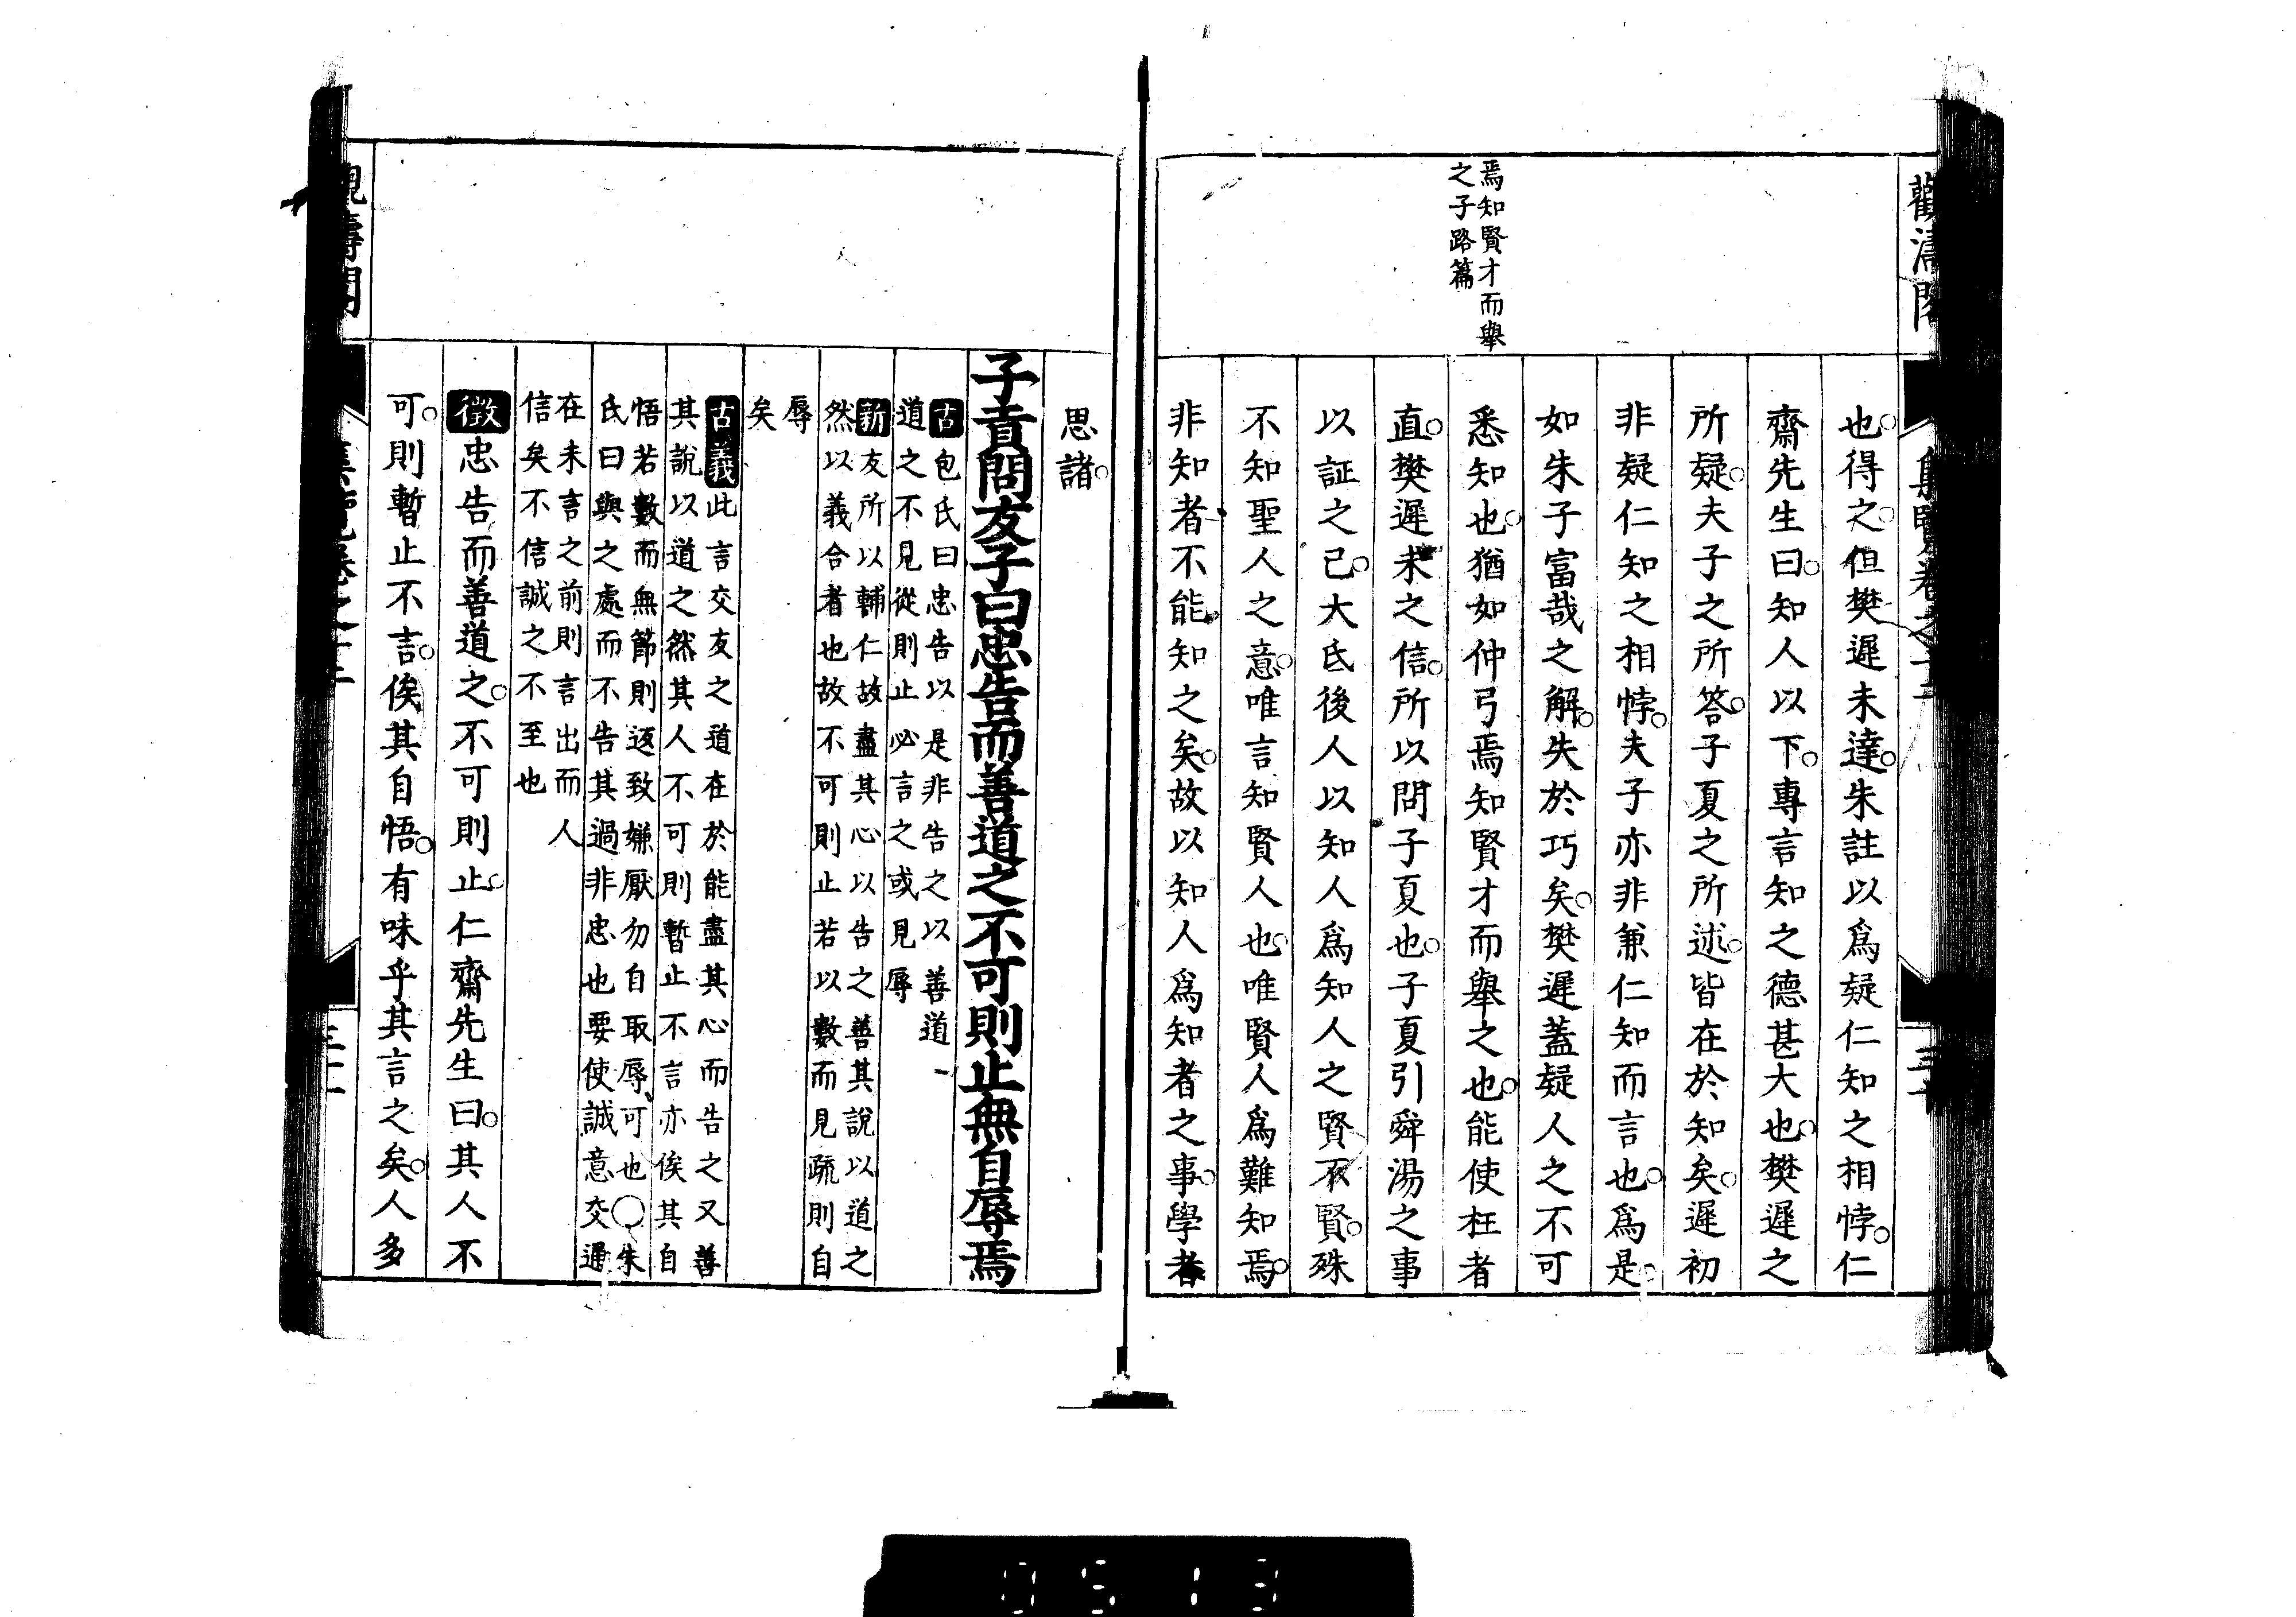 焉知賢才而舉
之子路篇
也得之但樊遲未達朱註以爲疑仁知之相悖仁
齋先生曰知人以下專言知之德甚大也樊遲之
所疑夫子之所答子夏之所述皆在於知矣遲初
非疑仁知之相悖夫子亦非兼仁知而言也爲是
如朱子富哉之解失於巧矣樊遲蓋疑人之不可
悉知也猶如仲弓焉知賢才而舉之也能使枉者
直樊遲未之信所以問子夏也子夏引舜湯之事
以証之已大氐後人以知人爲知人之賢不賢殊
不知聖人之意唯言知賢人也唯賢人爲難知焉
非知者不能知之矣故以知人爲知者之事學者
思諸
子貢問友子曰忠告而善道之不可則止無自辱焉
古包氏曰忠告以是非告之以善道
道之不見從則止必言之或見辱
新友所以輔仁故盡其心以告之善其說以道之
然以義合者也故不可則止若以數而見疏則自
辱
矣
古義此言交友之道在於能盡其心而告之又善
其說以道之然其人不可則暫止不言亦俟其自
悟若數而無節則返致嫌厭勿自取辱可也○朱
氏曰與之處而不告其過非忠也要使誠意交通
在未言之前則言出而人
信矣不信誠之不至也
徵忠告而善道之不可則止仁齋先生曰其人不
可則暫止不言俟其自悟有味乎其言之矣人多